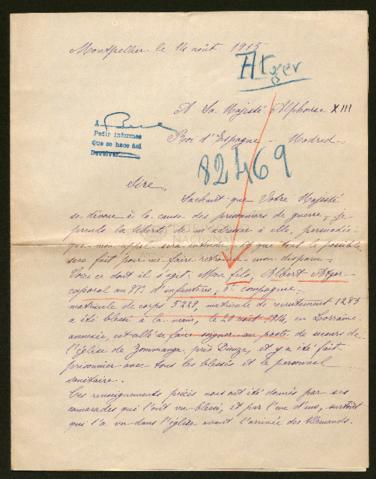 Montpellier le 14 août 1915
Atger
A Sa Majesté Alphonse XIII
Roi d'Espagne - Madrid -
A.
Pedir informes
que se hace así
Devolver
82469
Sire
Sachant que Votre Majesté
se dévoue à la cause des prisonniers de guerre, je
prends la liberté de m'adresser à elle, persuadée
que mon appel sera entendu et que tout le possible
sera fait pour me faire retrouver mon disparu.
Voici ce dont il s'agit. Mon fils, Albert Atger
caporal au d'infanterie, compagnie
matricule de corps 5228, matricule de recrutement 1283
a été blessé à la main, le 20 août 1914, en Lorraine
annexée, est allé se faire soigner au poste de secours de
l'église de près Dieuze, et y a été fait
prisonnier avec tous les blessés et le personnel
sanitaire.
Ces renseignements précis nous ont été donnés par ses
camarades qui l'ont vu blessé, et par l'un d'eux, surtout
qui l'a vu dans l'église avant l'arrivée des Allemands.